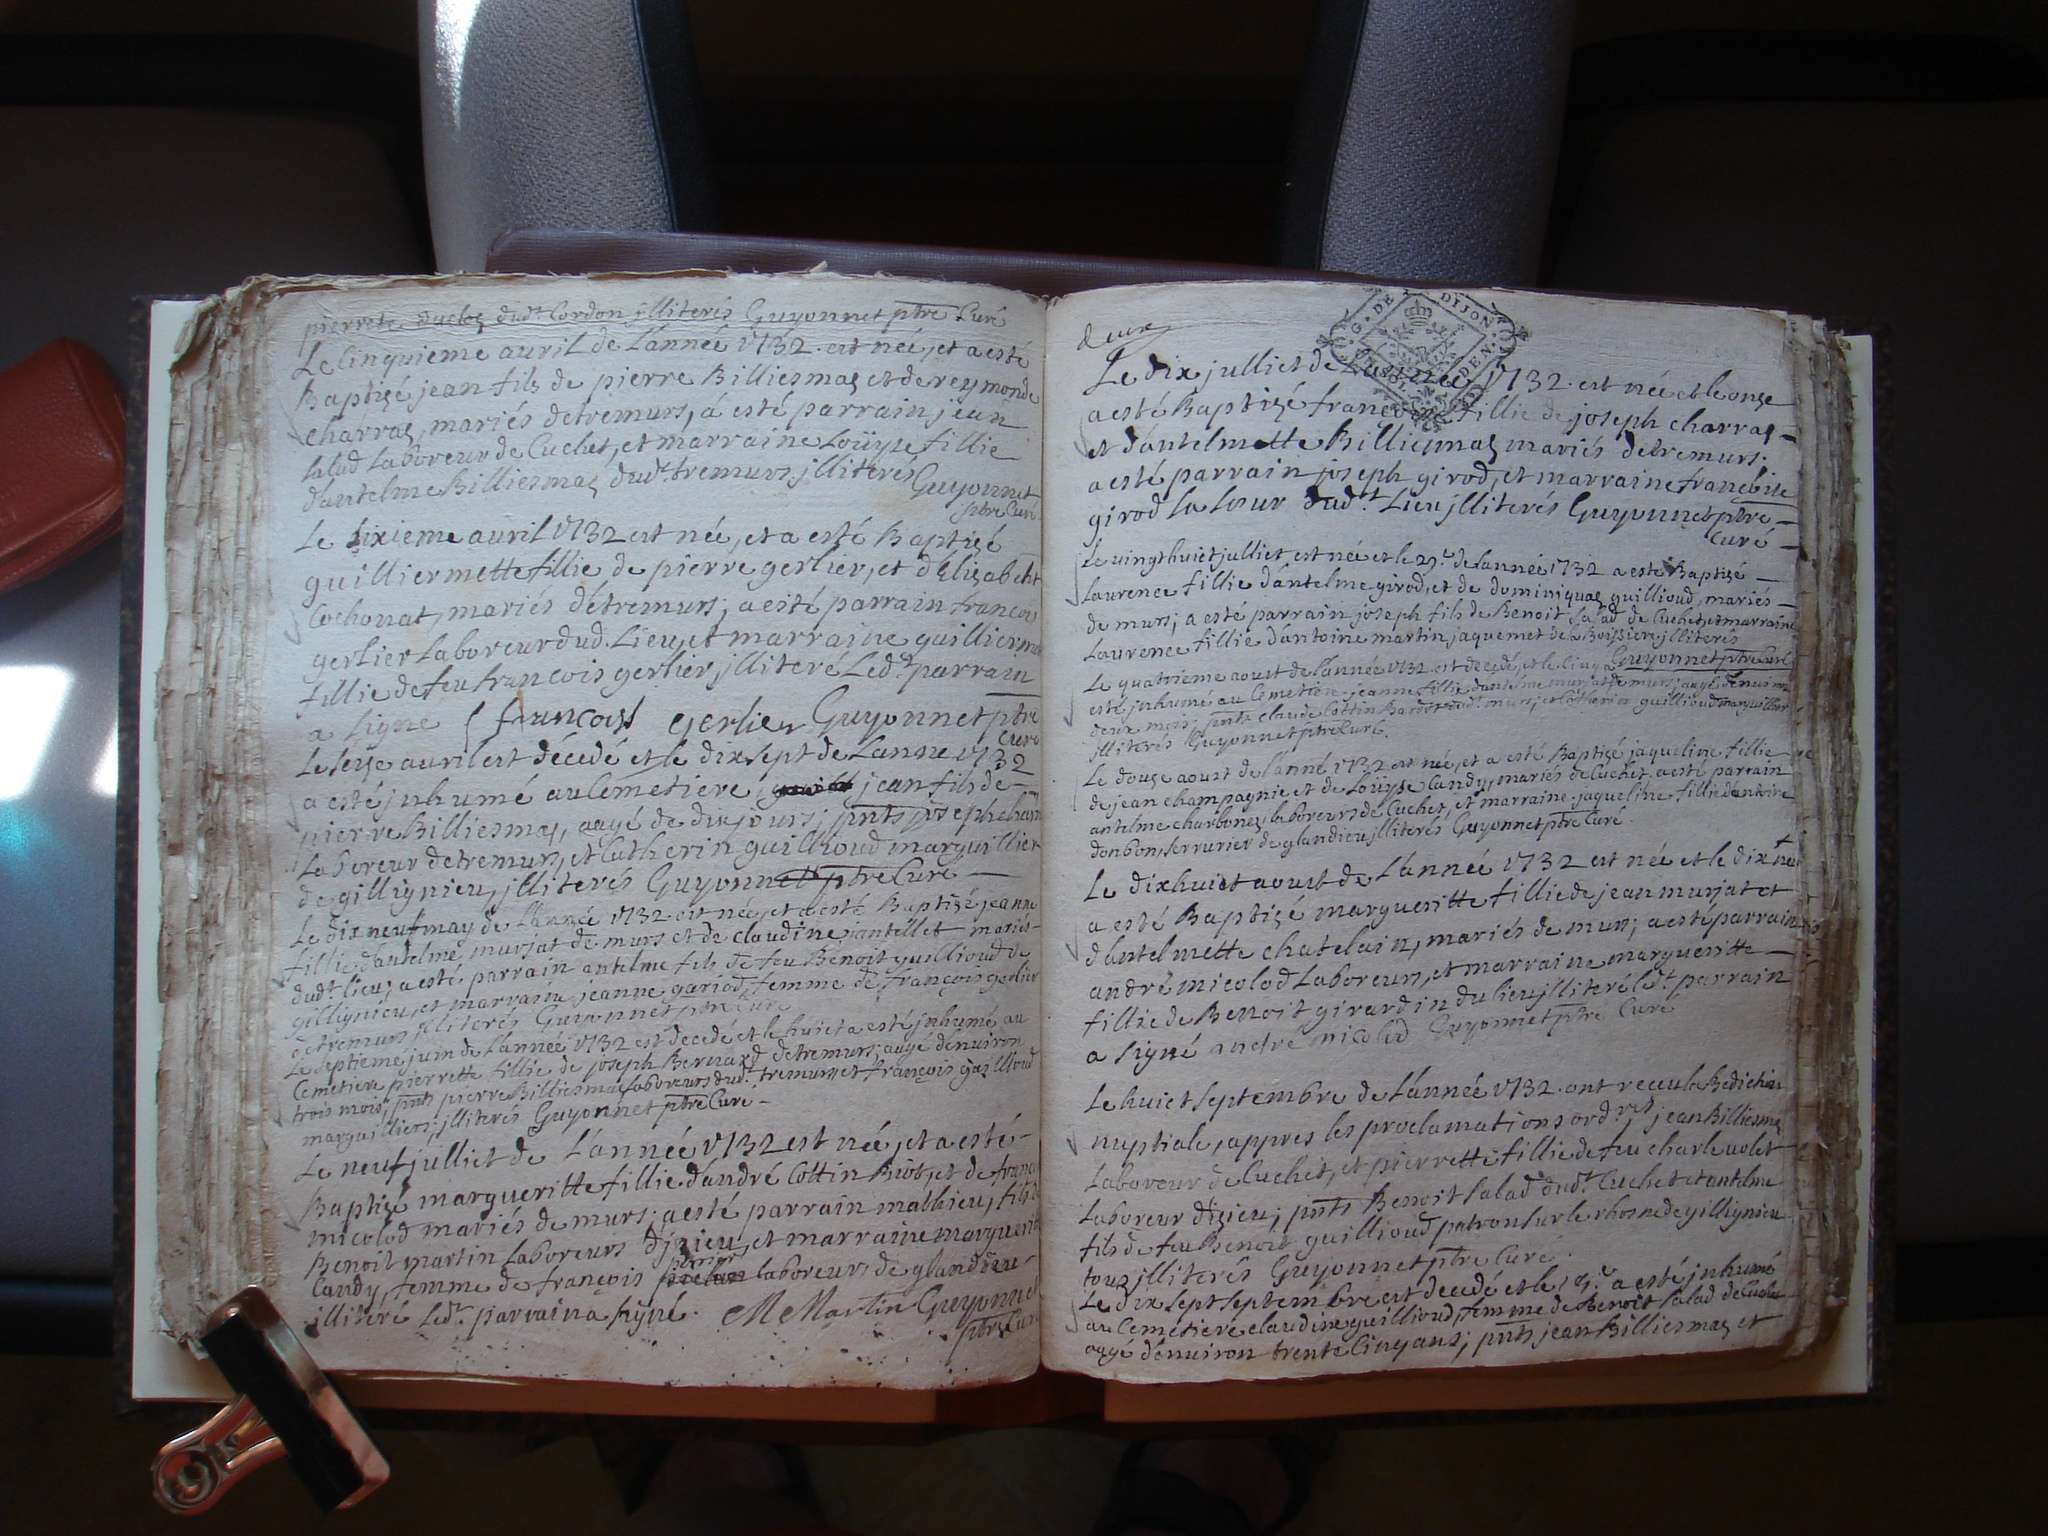 pierrete duclos dudt Cordon jlliterés Guyonnet ptre Curé
Le Cinquieme auril de L'année 1732. est née, et a esté
Baptizé jean fils de pierre Billiesmas et de reymonde
charras, mariés de tremurs, á esté parrain jean
salad Laboreur de Cuchet, et marraine Loüyse fillie
d'antelme Billiesmas dudt. tremurs jlliterés Guyonnet
ptre Curé
Le sixieme auril 1732 est née, et a esté Baptizé
guilliermette fillie de pierre gerlier, et d'Elizabeht
Cochonat, mariés de tremurs; a esté parrain francois
gerlier Laboreur dud. Lieu, et marraine guillierme
fillie de feu francois gerlier jlliteré Ledt. parrain
a signé françoys gerlier Guyonnet ptre
Curé
Le seize auril est décedé et le dix sept de L'anne 1732
a esté jnhumé au Cemetiere jean fils de
pierre Billiesmas, aagé de dix jours; pnts joseph
Laboreur de tremurs, et Catherin guillioud marguillier
de gillignieu, jlliterés Guyonnet ptre Curé
Le dix neuf may de L'année 1732 est née, et a esté Baptizé jeanne
fillie d'antelme mursat de murs et de claudine mariés
dudt. lieu; a esté parrain antelme fils de feu Benoit guillioud de
gillignieu, et marraine jeanne gariod, femme de françois gerlier
de tremurs jlliterés Guyonnet ptre Curé
Le septieme juin de L'année 1732 est decedé et le huict a esté jnhumé au
Cemetiere pierrette fillie de joseph Bernard de tremurs; aagé d'enuiron
trois mois; pnts pierre Billiesmas Laboreurs dudt. tremurs et françois guillioud
marguilliers; jlliterés Guyonnet ptre Curé
Le neuf julliet de L'année 1732 est née, et a esté
Baptizé margueritte fillie d'andré Cottin Biot, et de
micolod mariés de murs; a esté parrain mathieu, fils de
Benoit martin Laboreurs d'jzieu, et marraine marguerite
Candy, femme de françois laboreurs de glandieu
illiteré Ledt. parrain a signé. M Martin Guyonnet
ptre Curé
deux
G. DE DIJON
Le dix julliet de L'année 1732. est née et le onze
a esté Baptizé fillie de joseph charras
et d'antelmette Billiesmas mariés de tremurs;
a esté parrain joseph girod, et marraine
girod sa soeur dudt. Lieu jlliterés Guyonnet ptre
Curé
Le uingt huict julliet est née et le 29e. de L'année 1732 a esté Baptizé
Laurence fillie d'antelme girod, et de dominiquas guillioud, mariés
de murs; a esté parrain joseph fils de Benoit salad de Cuchet, et marraine
Laurence fillie d'antoine martin jaquemet de la Boissiere jlliterés
Guyonnet ptre Curé
Le quatrieme aoust de L'année 1732. est decedé, et le cinq
esté jnhumé au Cemetiere jeanne fillie d'antelme mursat de murs; aagé d'enuiron
deux mois; pnts claude Cottin murs, et Catherin guillioud marguillier
jlliterés Guyonnet ptre Curé.
Le douze aoust de L'anné 1732 est née, et a esté Baptizé jaqueline fillie
de jean champagnie et de Loüyse Candy, mariés de Cuchet, a esté parrain
antelme charbones, laboreurs de Cuchet, et marraine jaqueline fillie d'antoine
donbon, serrurier de glandieu jlliterés Guyonnet ptre Curé.
Le dix huict aoust de L'année 1732 est née et le dix
a esté Baptizé margueritte fillie de jean mursat et
d'antelmette chatelain, mariés de murs; a esté parrain
andré micolod Laboreurs, et marraine margueritte
fillie de Benoit girardin du lieu jlliteré ledt. parrain
a signé andré micolod Guyonnet ptre Curé
Le huict septembre de L'année 1732. ont receu la Bediction
nuptiale, appres les proclamations ordres, jean Billiesmas
Laboreur de Cuchet, et pierrette fillie de feu charle uolet
Laboreur d'izieu; pnts Benoit salad dudt. Cuchet et antelme
fils de feu Benoit guillioud patron sur le rhosne de gillignieu
tous jlliterés Guyonnet ptre Curé.
Le dix sept septembre est decedé et le a esté jnhumé
au Cemetiere claudine guillioud femme de Benoit salad de Cuchet
aagé d'enuiron trente cinq ans; pnts jean Billiesmas et